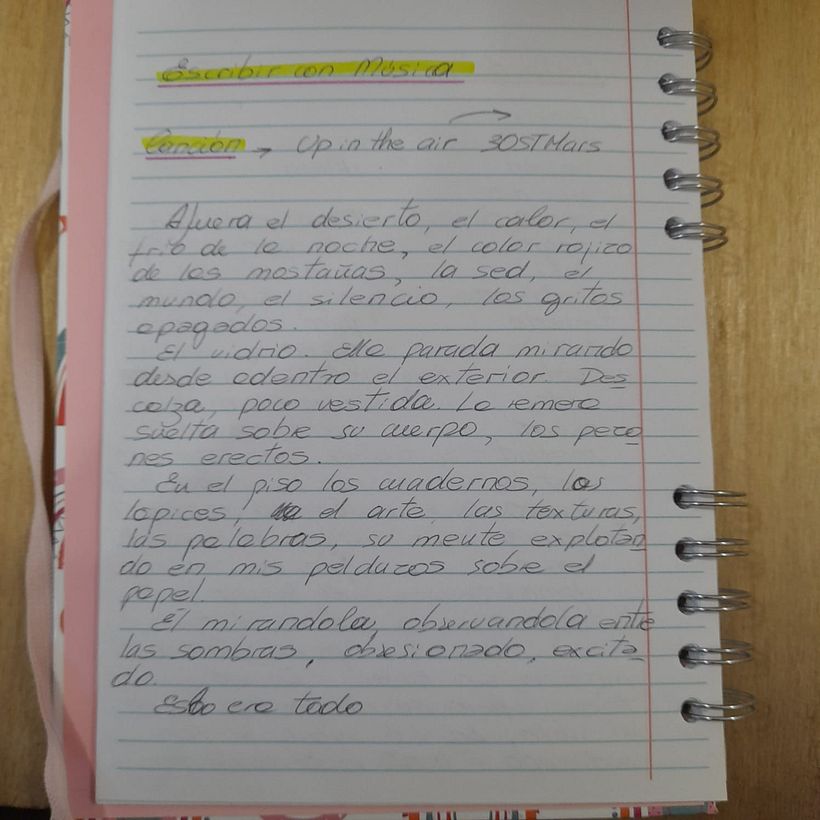 Escribir con Música
Canción → Up in the air 30STMars
Afuera el desierto, el calor, el
frio de la noche, el color rojizo
de las mostañas, la sed, el
mundo, el silencio, los gritos
apagados.
El vidrio. Ella parada mirando
desde adentro el exterior. Des
calza, poco vestida. La remera
suelta sobe su cuerpo, los pezo
nes erectos.
En el piso los cuadernos, los
lapices, el arte, las texturas,
las palabras, su mente explotan
do en mis pelduzos sobe el
papel.
Él mirandola, observandola ente
las sombras, obsesionado, excita
do.
Esto era todo